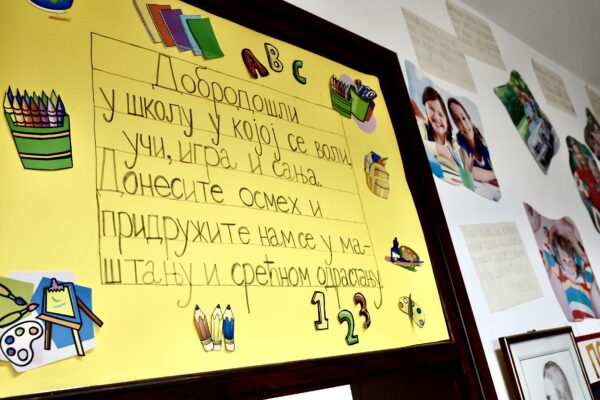 АВС
Добродошли
у школу у којој се воли,
учи, игра и сања.
Донесите осмех и
придружите нам се у ма-
штању и срећном одрастању.
123